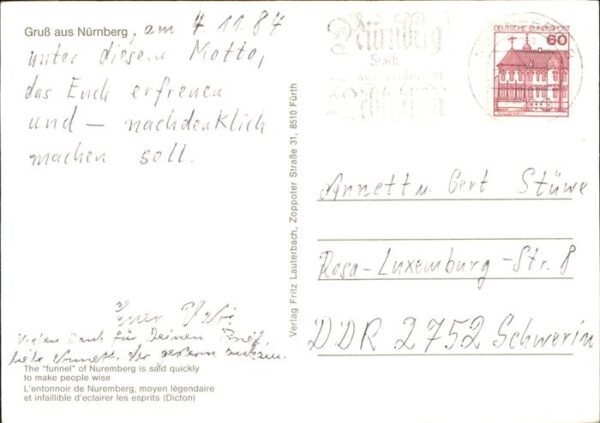 Gruß aus Nürnberg, am 4 11 84
unter diesem Motto,
das Euch erfreuen
und – nachdenklich
machen soll.
Euer
Vielen Dank für Deinen Brief,
liebe Annett, der gestern ankam.
The "funnel" of Nuremberg is said quickly
to make people wise
L'entonnoir de Nuremberg, moyen légendaire
et infaillible d'eclairer les esprits (Dicton)
Verlag Fritz Lauterbach, Zoppoter Straße 31, 8510 Fürth
Nürnberg
Stadt
DEUTSCHE BUNDESPOST
60
Annett u. Gert Stüwe
Rosa-Luxemburg-Str. 8
DDR 2752 Schwerin